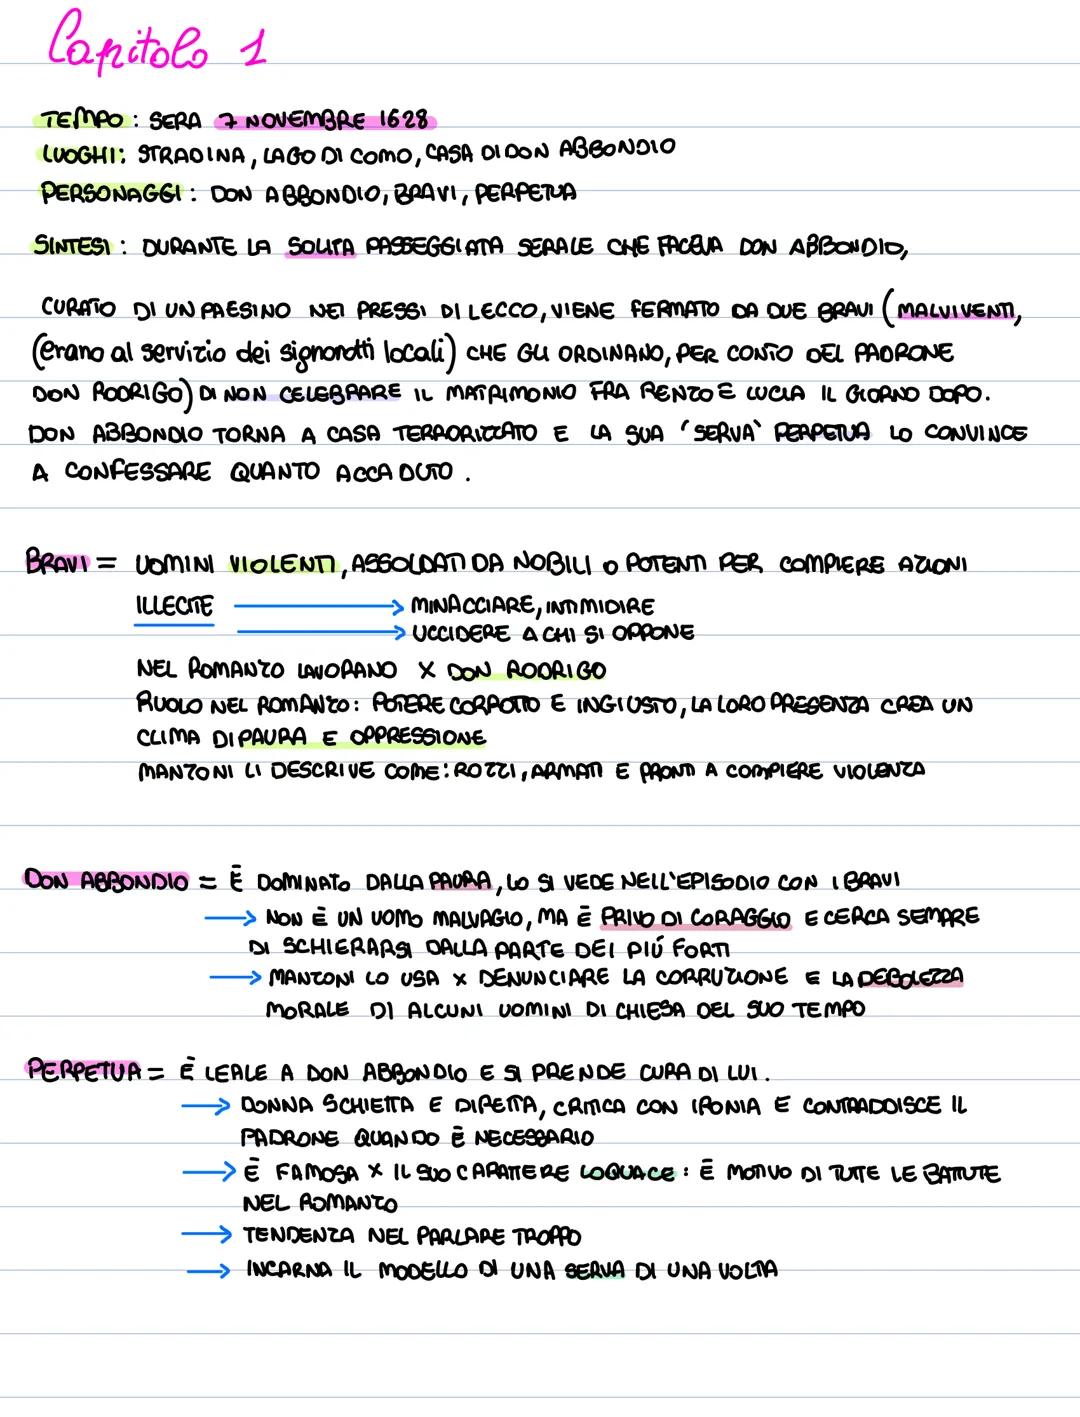 Capitolo 1
TEMPO: SERA 7 NOVEMBRE 1628
LUOGHI: STRADINA, LAGO DI COMO, CASA DI DON ABBONDIO
PERSONAGGI: DON ABBONDIO, BRAVI, PERPETUA
SINTESI: DURANTE LA SOLITA PASSEGGIATA SERALE CHE FACEVA DON ABBONDIO,
CURATO DI UN PAESINO NEI PRESSI DI LECCO, VIENE FERMATO DA DUE BRAVI (MALVIVENTI,
(erano al servizio dei signorotti locali) CHE GLI ORDINANO, PER CONTO DEL PADRONE
DON RODRIGO) DI NON CELEBRARE IL MATRIMONIO FRA RENZO E LUCIA IL GIORNO DOPO.
DON ABBONDIO TORNA A CASA TERRORIZZATO E LA SUA 'SERVA' PERPETUA LO CONVINCE
A CONFESSARE QUANTO ACCADUTO.
BRAVI = UOMINI VIOLENTI, ASSOLDATI DA NOBILI O POTENTI PER COMPIERE AZIONI
ILLECITE → MINACCIARE, INTIMIDIRE
→ UCCIDERE A CHI SI OPPONE
NEL ROMANZO LAVORANO X DON RODRIGO
RUOLO NEL ROMANZO: POTERE CORROTTO E INGIUSTO, LA LORO PRESENZA CREA UN
CLIMA DI PAURA E OPPRESSIONE
MANZONI LI DESCRIVE COME: ROZZI, ARMATI E PRONTI A COMPIERE VIOLENZA
DON ABBONDIO = È DOMINATO DALLA PAURA, LO SI VEDE NELL'EPISODIO CON I BRAVI
→ NON È UN UOMO MALVAGIO, MA È PRIVO DI CORAGGIO E CERCA SEMPRE
DI SCHIERARSI DALLA PARTE DEI PIÚ FORTI
→ MANZONI LO USA X DENUNCIARE LA CORRUZIONE E LA DEBOLEZZA
MORALE DI ALCUNI UOMINI DI CHIESA DEL SUO TEMPO
PERPETUA = È LEALE A DON ABBONDIO E SI PRENDE CURA DI LUI.
→ DONNA SCHIETTA E DIRETTA, CRITICA CON IRONIA E CONTRADDISCE IL
PADRONE QUANDO È NECESSARIO
→ È FAMOSA X IL SUO CARATTERE LOQUACE: È MOTIVO DI TUTTE LE BATTUTE
NEL ROMANZO
→ TENDENZA NEL PARLARE TROPPO
→ INCARNA IL MODELLO DI UNA SERVA DI UNA VOLTA